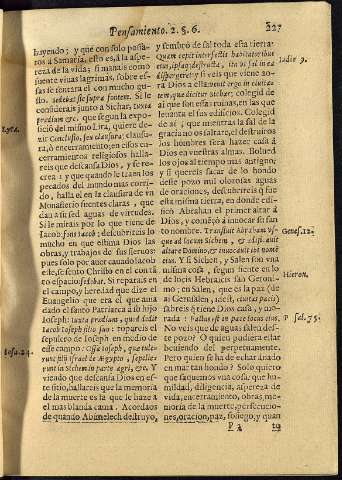 Pensamiento. 2. §. 6.
227
huyendo; y que con solo passa-
tos à Samaria, esto es, à la aspe-
reza de la vida; si manàs como
fuente vivas lagrimas, sobre es-
sas se sentara el con mucho gus-
to. sedebat sic supra fontem. Si le
considerais junto à Sichar, iuxta
prædium &c. que segun la expo-
sició del mismo Lira, quiere de-
zir Conclusio, seu clausura; clausu-
ra, ò encerramiento; en essos en-
cerramientos religiosos halla-
reis que descansa Dios, y se re-
crea: y que quando le traen los
pecados del mundo mas corri-
do, halla el en la clausura de vn
Monasterio fuentes claras, que
dan a su sed aguas de virtudes.
Si le mirais por lo que tiene de
Iacob: fons Iacob; descubrireis lo
mucho en que estima Dios las
obras, y trabajos de sus siervos:
pues solo por auer cauado Iacob
este, se sento Christo en el con ta-
to espacio: sedebat. Si reparais en
el campo, y heredad que dize el
Euangelio que era el que auia
dado el santo Patriarca à su hijo
Ioseph: iuxta prædium, quod dedit
Iacob Ioseph filio suo: topareis el
sepulcro de Ioseph en medio de
esse campo: Ossa Ioseph, quæ tule-
runt filij Israel de Ægypto, sepelie-
runt in Sichem in parte agri, &c. Y
viendo que descansa Dios en es-
te sitio, hallareis que la memoria
de la muerte es la que le haze a
el mas blanda cama. Acordaos
de quando Abimelech destruyo,
Lyra.
Iosu. 24.
y sembrò de sal toda esta tierra:
Quam cepit interfectis habitatoribus
eius, ipsaq; destructa, ita vt sal in ea
dispergeret; y si veis que viene aora
Dios a ella: venit ergo in ciuita-
tem, quæ dicitur Sichar; colegid de
aì que son essas ruinas, en las que
leuanta el sus edificios. Colegid
de aì, que mientras la sal de la
gracia no os saltare, el destruiros
los hombres serà hazer casa à
Dios en vuestras almas. Bolued
los ojos al tiempo mas antiguo;
y si quereis sacar de lo hondo
deste pozo mil olorosas aguas
de oraciones, descubrireis q̃ fue
esta misma tierra, en donde edi-
ficò Abrahan el primer altar à
Dios, y començò à inuocar su san-
to nombre. Transiuit Abraham vs-
que ad locum Sichem, & ædificauit
altare Domino, & inuocauit ibi nomen
eius. Y si Sichem, y Salen son vna
misma cosa, segun siente en lo
de locis Hebraicis san Geroni-
mo; en Salen, que es la paz (de
aì Gerusalen, idest, ciuitas pacis)
sabreis q̃ tiene Dios casa, y mo-
rada: Factus est in pace locus eius.
No veis que de aguas salen des-
te pozo? O quien pudiera estar
beuiendo del perpetuamente.
Pero quien se ha de echar à nado
en mar tan hondo? Solo quiero
que saquemos vna cosa: que hu-
mildad, diligencia, aspereza de
vida, encerramiento, obras, me-
moria de la muerte, persecucio-
nes, oracion, paz, sosiego, y quan
Iudic. 9.
Genes. 12.
Hieron.
Psal. 75.
P 2